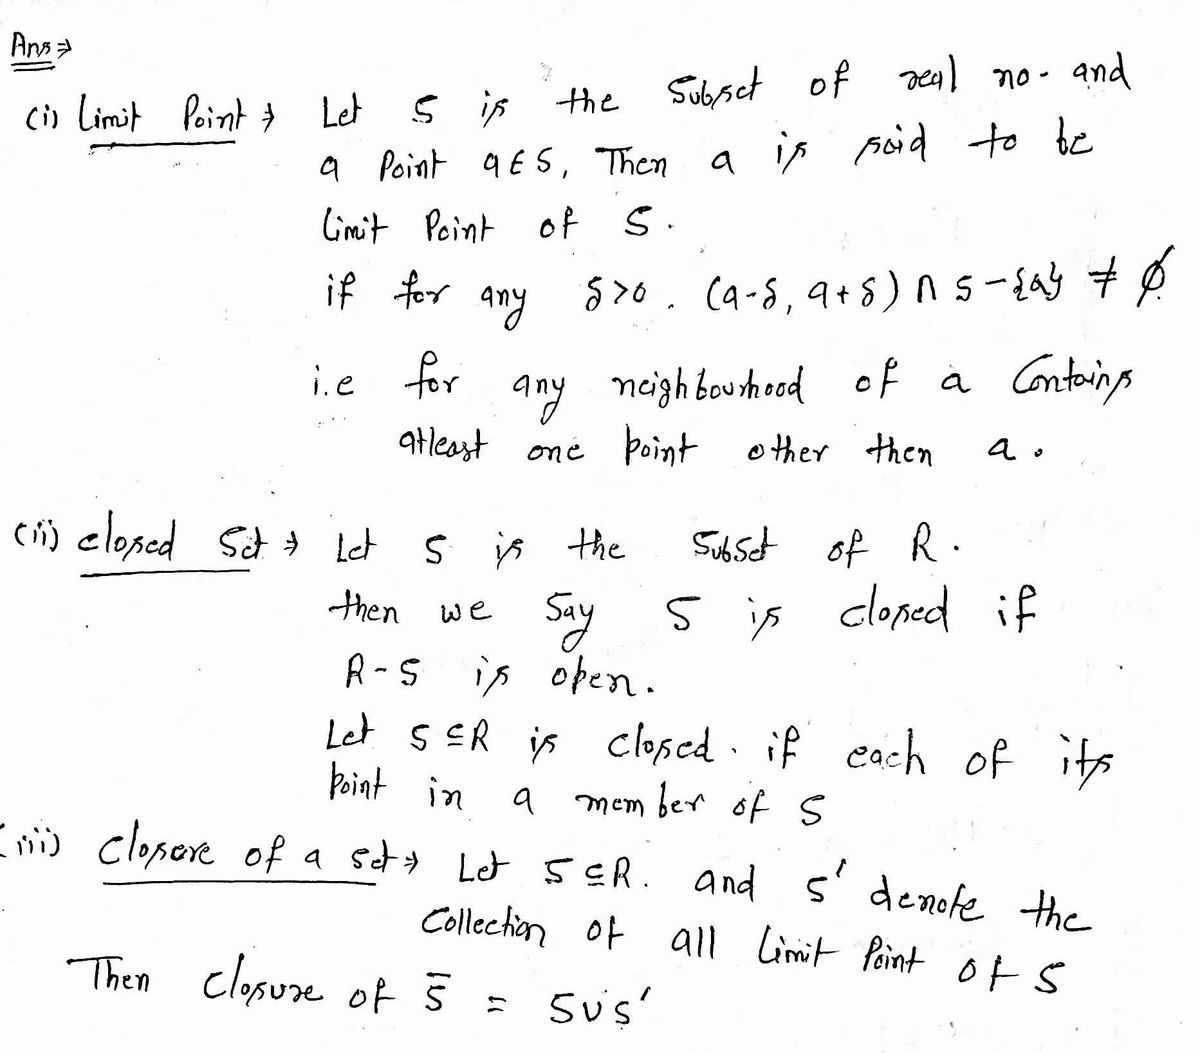 Ans ⇒
(i) Limit Point → Let S is the Subset of real no. and
a Point a ∈ S, Then a is said to be
Limit Point of S.
if for any δ>0. (a-δ, a+δ) ∩ S-{a} ≠ ∅.
i.e for any neighbourhood of a Contains
atleast one point other then a.
(ii) closed Set → Let S is the Subset of R.
then we Say S is closed if
R-S is open.
Let S ⊆ R is closed. if each of its
Point in a member of S
(iii) Closere of a set → Let S ⊆ R. and S' denote the
Collection of all Limit Point of S
Then Closure of S̅ = S∪S'